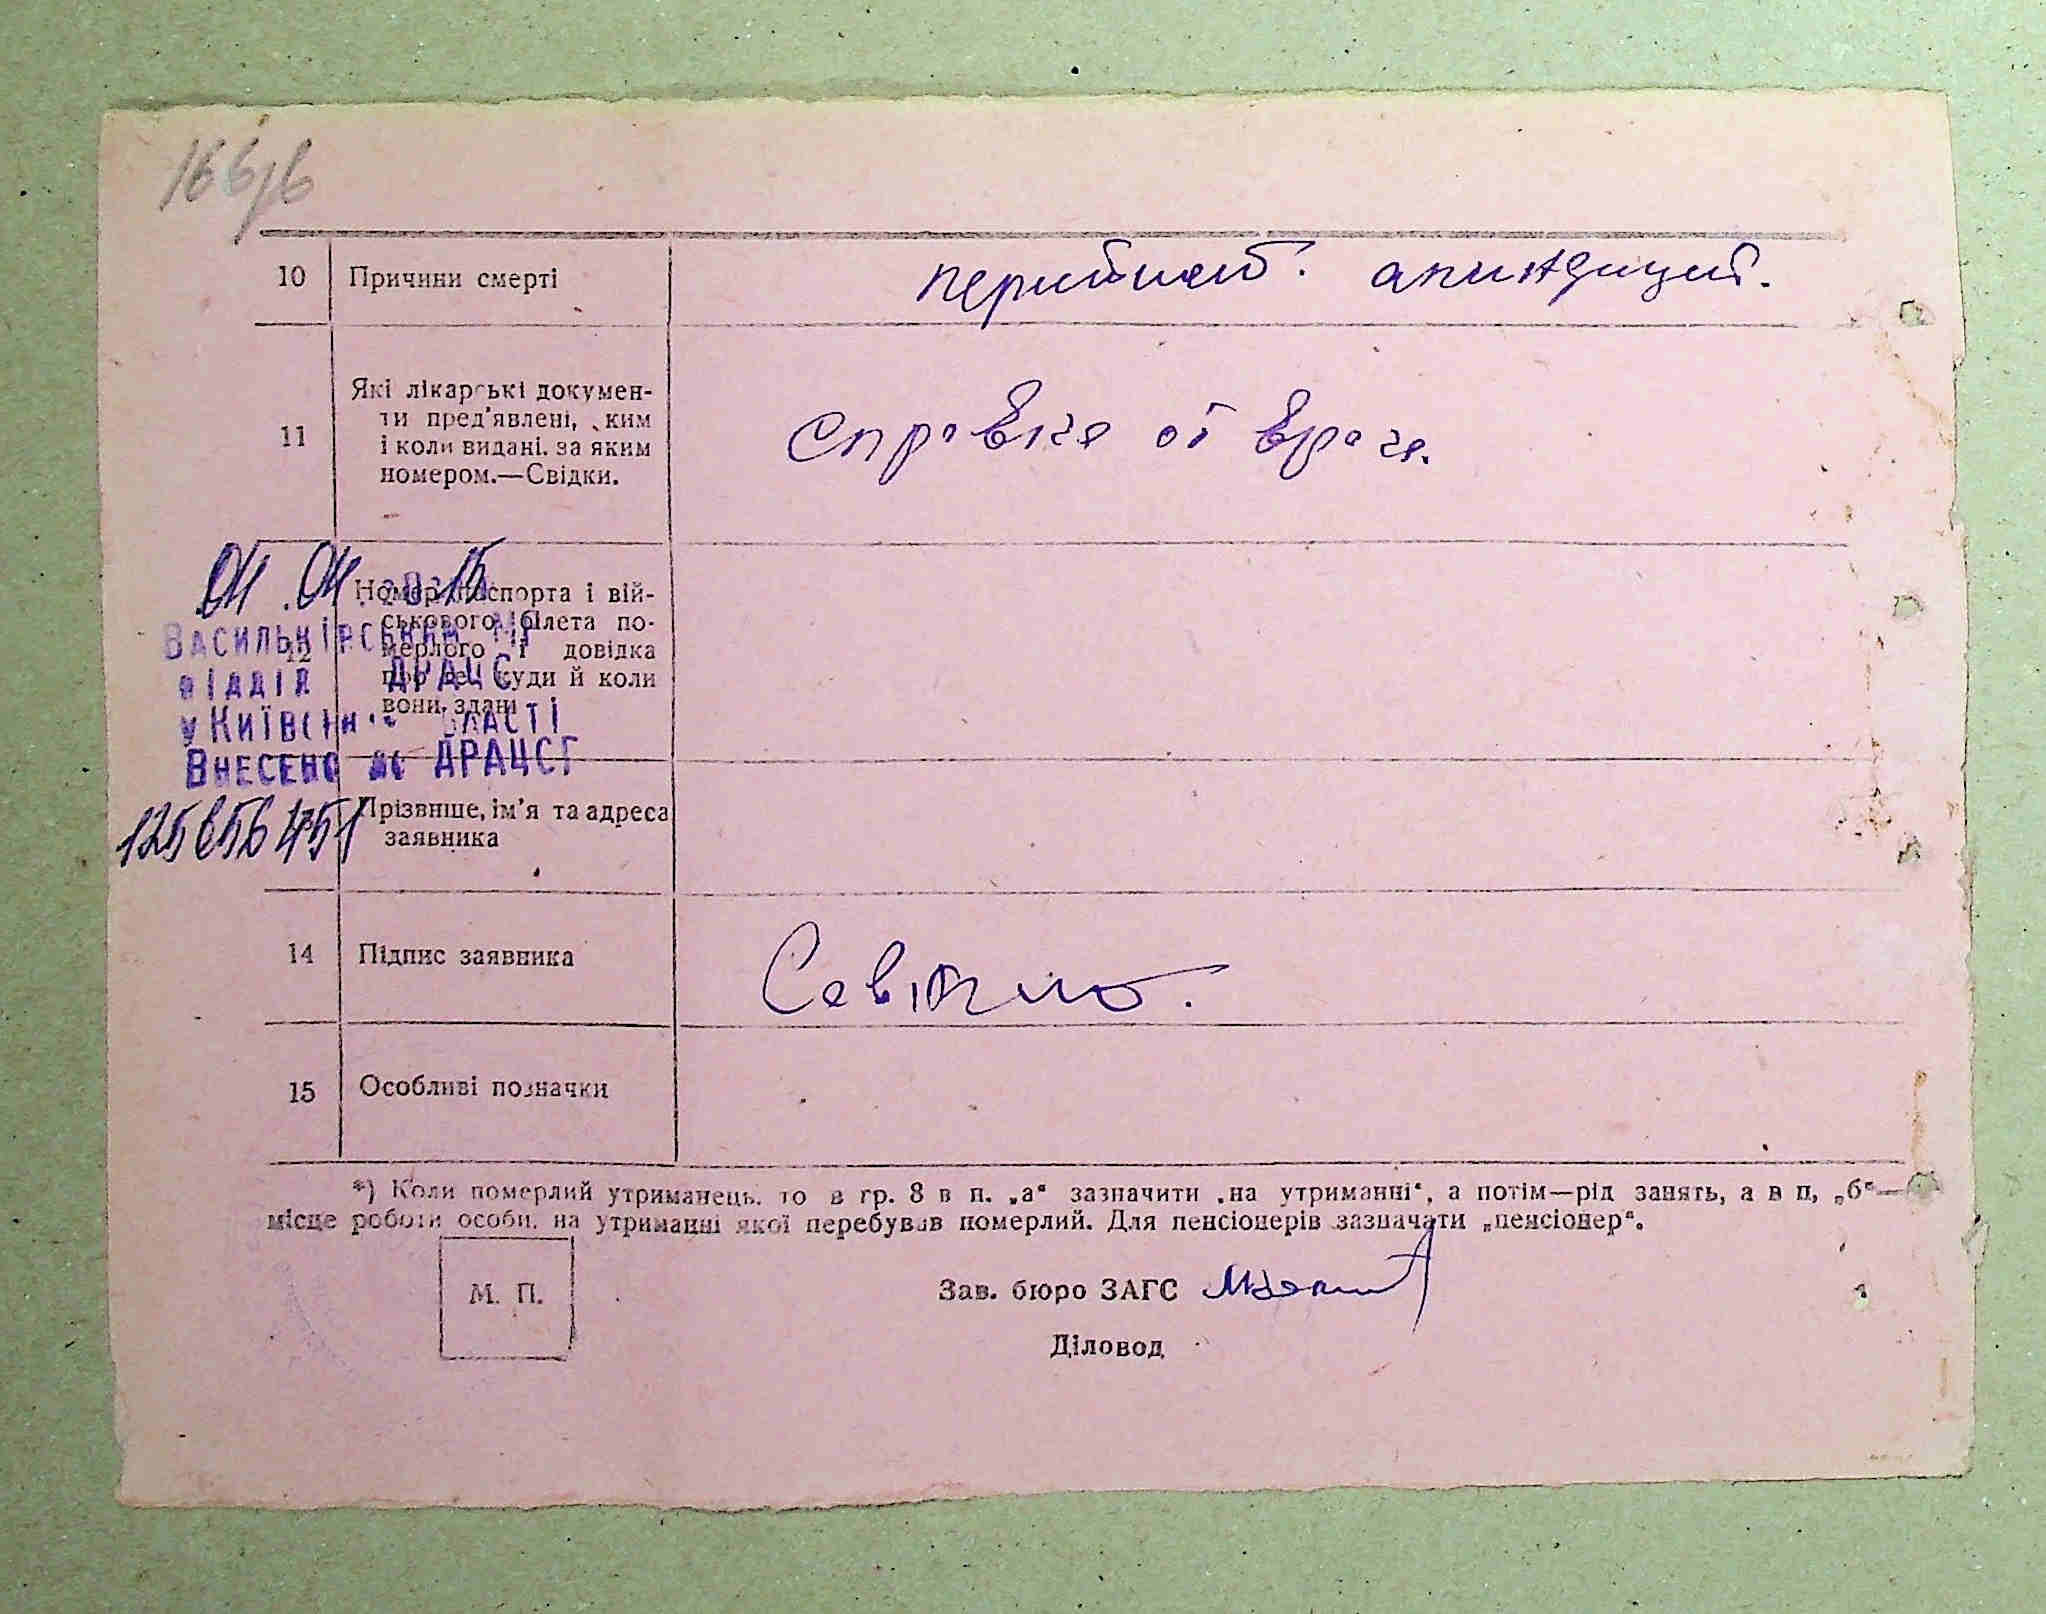 166/6
10 Причини смерті перитонит. апиндицит.
11 Які лікарські докумен-
ти пред'явлені, ким
і коли видані. за яким
номером.—Свідки.
справка от врача.
04.04.2015
12 Номер паспорта і вій-
ськового білета по-
мерлого і довідка
про те, куди й коли
вони здані
Васильківський МР
відділ ДРАЦС
у Київській області
Внесено до ДРАЦСГ
Прізвище, ім'я та адреса
заявника
14 Підпис заявника
15 Особливі позначки
*) Коли померлий утриманець. то в гр. 8 в п. „а“ зазначити „на утриманні“, а потім—рід занять, а в п, „б“—
місце роботи особи. на утриманні якої перебував померлий. Для пенсіонерів зазначати „пенсіонер“.
М. П.
Зав. бюро ЗАГС
Діловод